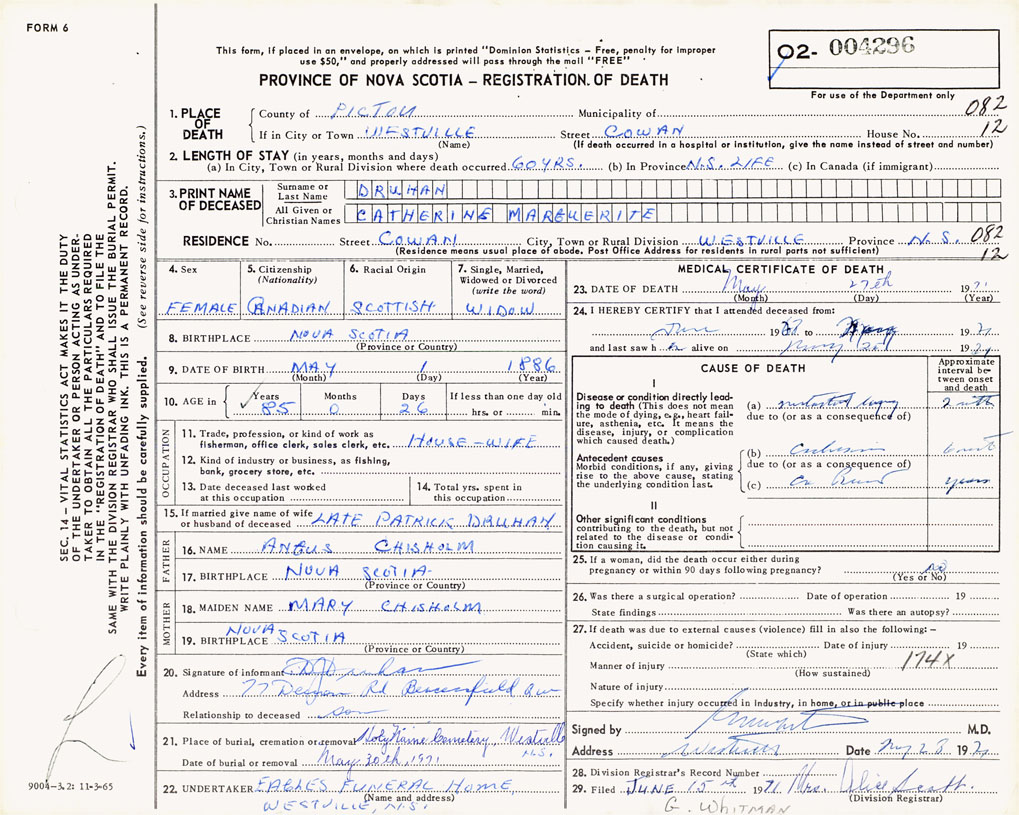 FORM 6
This form, if placed in an envelope, on which is printed "Dominion Statistics – Free, penalty for improper
use $50," and properly addressed will pass through the mail "FREE"
PROVINCE OF NOVA SCOTIA – REGISTRATION OF DEATH
02- 004296
For use of the Department only
082
12
1. PLACE OF DEATH
County of PICTOU Municipality of
If in City or Town WESTVILLE Street COWAN House No.
(Name) (If death occurred in a hospital or institution, give the name instead of street and number)
2. LENGTH OF STAY (in years, months and days)
(a) In City, Town or Rural Division where death occurred 60 YRS. (b) In Province N.S. LIFE (c) In Canada (if immigrant)
3. PRINT NAME OF DECEASED
Surname or Last Name DRUHAN
All Given or Christian Names CATHERINE MARGUERITE
RESIDENCE No. Street COWAN City, Town or Rural Division WESTVILLE Province N.S. 082
(Residence means usual place of abode. Post Office Address for residents in rural parts not sufficient) 12
4. Sex
FEMALE
5. Citizenship
(Nationality)
CANADIAN
6. Racial Origin
SCOTTISH
7. Single, Married,
Widowed or Divorced
(write the word)
WIDOW
8. BIRTHPLACE NOVA SCOTIA
(Province or Country)
9. DATE OF BIRTH MAY 1 1886
(Month) (Day) (Year)
10. AGE in Years Months Days If less than one day old
85 0 26 hrs. or min.
OCCUPATION
11. Trade, profession, or kind of work as
fisherman, office clerk, sales clerk, etc. HOUSE-WIFE
12. Kind of industry or business, as fishing,
bank, grocery store, etc.
13. Date deceased last worked
at this occupation
14. Total yrs. spent in
this occupation
15. If married give name of wife
or husband of deceased LATE PATRICK DRUHAN
FATHER
16. NAME ANGUS CHISHOLM
17. BIRTHPLACE NOVA SCOTIA
(Province or Country)
MOTHER
18. MAIDEN NAME MARY CHISHOLM
19. BIRTHPLACE NOVA SCOTIA
(Province or Country)
20. Signature of informant Druhan
Address 77 Rd
Relationship to deceased son
21. Place of burial, cremation or removal Holy Name Cemetery, Westville
N.S.
Date of burial or removal May 30th, 1971
22. UNDERTAKER EAGLES FUNERAL HOME,
(Name and address)
WESTVILLE, N.S.
MEDICAL CERTIFICATE OF DEATH
23. DATE OF DEATH May 27th 1971
(Month) (Day) (Year)
24. I HEREBY CERTIFY that I attended deceased from:
19 to 1971
and last saw h er alive on 1971
CAUSE OF DEATH
Approximate
interval be-
tween onset
and death
I
Disease or condition directly lead-
ing to death (This does not mean
the mode of dying, e.g., heart fail-
ure, asthenia, etc. It means the
disease, injury, or complication
which caused death.)
(a)
due to (or as a consequence of)
Antecedent causes
Morbid conditions, if any, giving
rise to the above cause, stating
the underlying condition last.
(b)
due to (or as a consequence of)
(c) years
II
Other significant conditions
contributing to the death, but not
related to the disease or condi-
tion causing it.
25. If a woman, did the death occur either during
pregnancy or within 90 days following pregnancy? no
(Yes or No)
26. Was there a surgical operation? Date of operation 19
State findings Was there an autopsy?
27. If death was due to external causes (violence) fill in also the following: –
Accident, suicide or homicide? Date of injury 19
(State which)
174X
Manner of injury
(How sustained)
Nature of injury
Specify whether injury occurred in industry, in home, or in public place
Signed by M.D.
Address Westville Date May 28 1971
28. Division Registrar's Record Number
29. Filed JUNE 15th 1971 Mrs. Alice Scott.
(Division Registrar)
G. WHITMAN
SEC. 14 – VITAL STATISTICS ACT MAKES IT THE DUTY
OF THE UNDERTAKER OR PERSON ACTING AS UNDER-
TAKER TO OBTAIN ALL THE PARTICULARS REQUIRED
IN THE "REGISTRATION OF DEATH" AND TO FILE THE
SAME WITH THE DIVISION REGISTRAR WHO SHALL ISSUE THE BURIAL PERMIT.
WRITE PLAINLY WITH UNFADING INK. THIS IS A PERMANENT RECORD.
Every item of information should be carefully supplied. (See reverse side for instructions.)
9004-3.2: 11-3-65